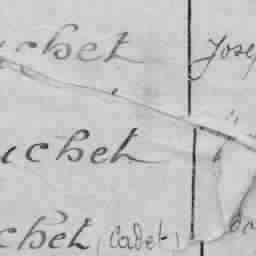 uchet Jose
uchet "
chet (Cadet)